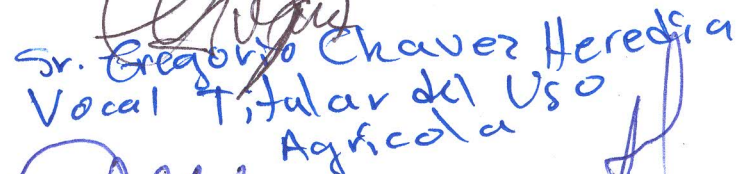 Sr. Gregorio Chavez Heredia
Vocal Titular del Uso
Agrícola